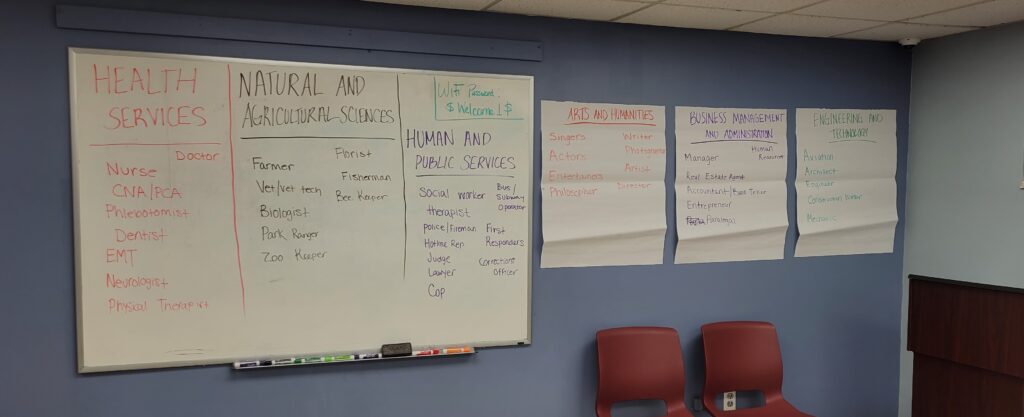 HEALTH
SERVICES
Doctor
Nurse
CNA/PCA
Phlebotomist
Dentist
EMT
Neurologist
Physical Therapist
NATURAL AND
AGRICULTURAL SCIENCES
Farmer
Vet/Vet tech
Biologist
Park Ranger
Zoo Keeper
Florist
Fisherman
Bee Keeper
WiFi Password:
$Welcome1$
HUMAN AND
PUBLIC SERVICES
Social worker
therapist
police/fireman
Hotline Rep
Judge
Lawyer
Cop
Bus/
Subway
Operator
First
Responders
Corrections
Officer
ARTS AND HUMANITIES
Singers
Actors
Entertainers
Philosopher
Writer
Artist
Director
BUSINESS MANAGEMENT
AND ADMINISTRATION
Manager
Real Estate
Accountant/
Entrepreneur
Paralegal
Human
Resources
ENGINEERING AND
TECHNOLOGY
Aviation
Architect
Engineer
Construction Worker
Mechanic